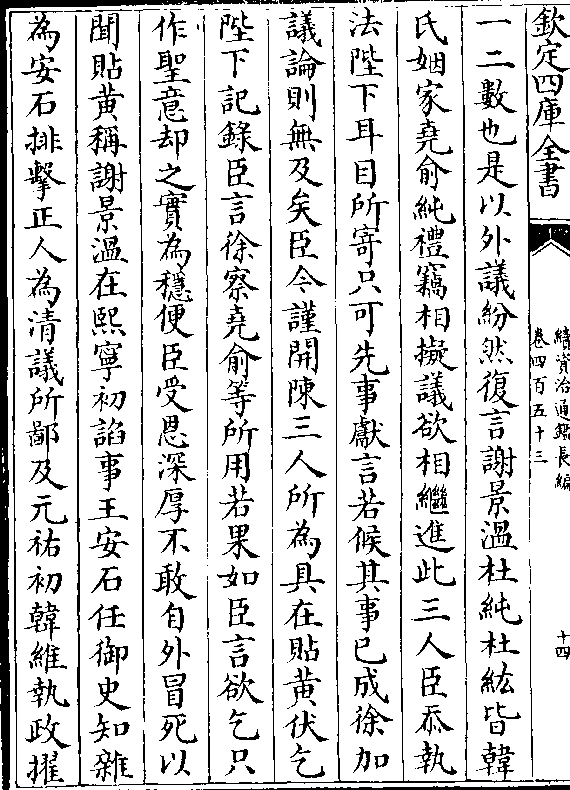 欽定四庫全書
續資治通鑑長編
卷四百五十三
十四
一二數也是以外議紛然復言謝景溫杜純杜紘皆韓
氏姻家堯俞純禮竊相擬議欲相繼進此三人臣忝執
法陛下耳目所寄只可先事獻言若候其事已成徐加
議論則無及矣臣今謹開陳三人所為具在貼黄伏乞
陛下記錄臣言徐察堯俞等所用若果如臣言欲乞只
作聖意却之實為穩便臣受恩深厚不敢自外冒死以
聞貼黄稱謝景溫在熙寧初諂事王安石任御史知雜
為安石排擊正人為清議所鄙及元祐初韓維執政擢